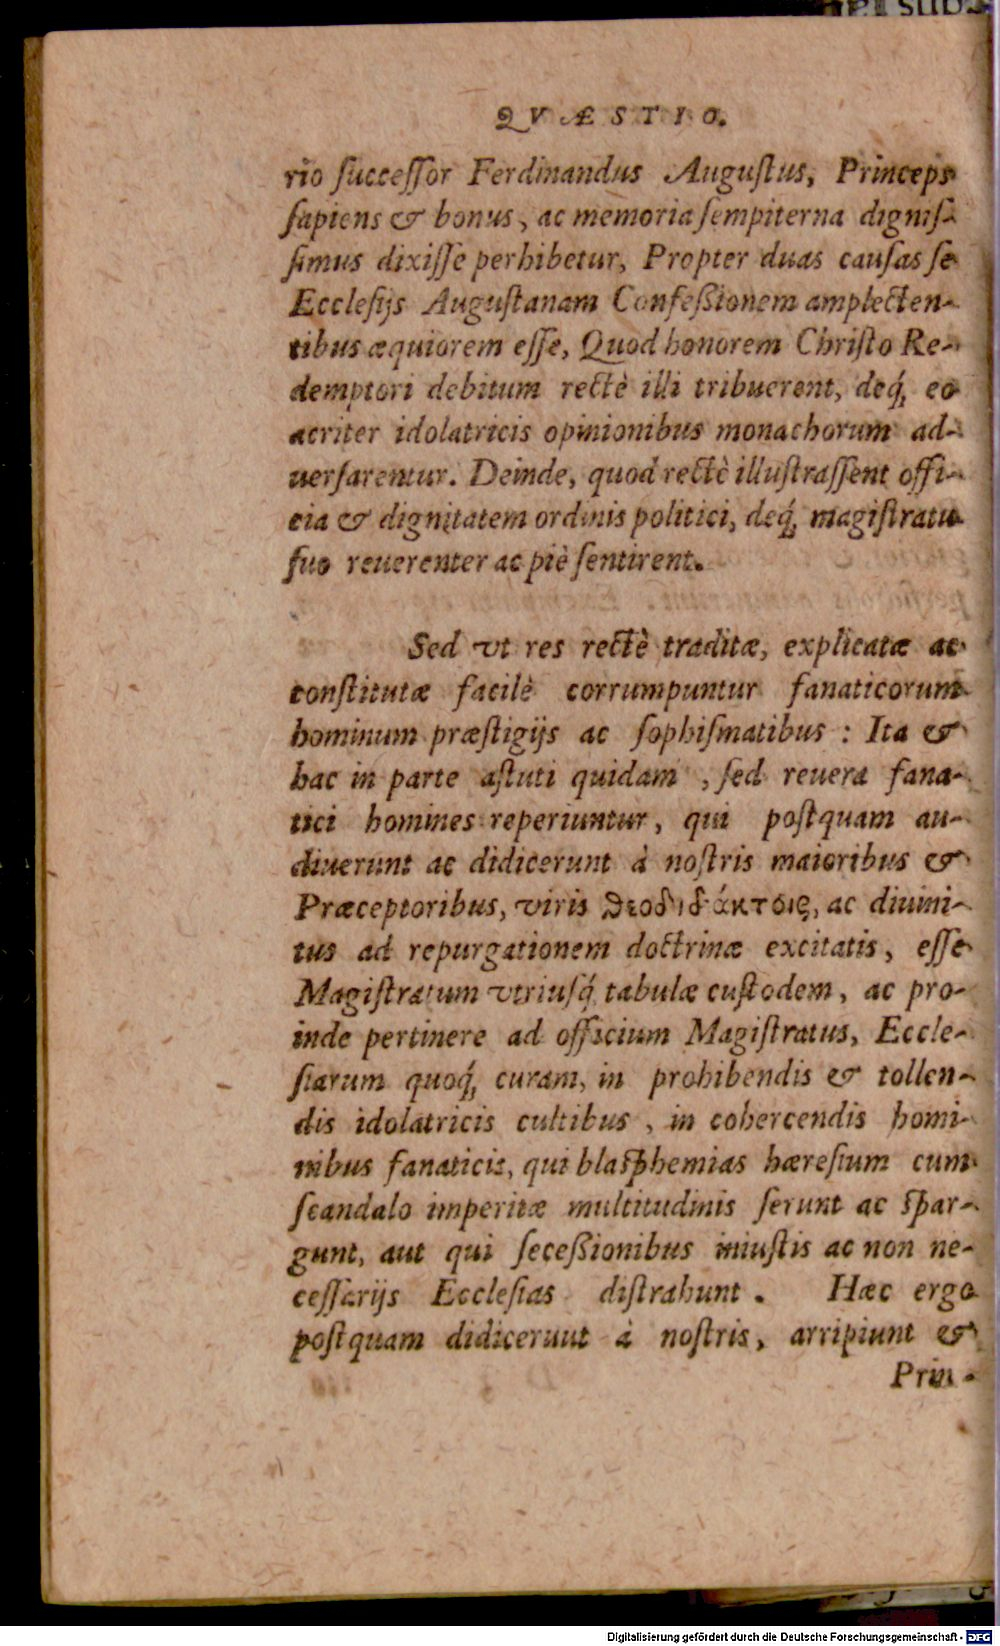 QVÆSTIO.
rio ſucceſſor Ferdinandus Auguſtus, Princeps
ſapiens & bonus, ac memoria ſempiterna digniſ-
ſimus dixiſſe perhibetur, Propter duas cauſas ſe
Eccleſijs Auguſtanam Confeßionem amplecten-
tibus æquiorem eſſe, Quod honorem Chriſto Re-
demptori debitum rectè illi tribuerent, deq́; eo
acriter idolatricis opinionibus monachorum ad-
uerſarentur. Deinde, quod rectè illuſtraſſent offi-
cia & dignitatem ordinis politici, deq́; magiſtratu
ſuo reuerenter ac piè ſentirent.
Sed vt res rectè traditæ, explicatæ ac
conſtitutæ facilè corrumpuntur fanaticorum
hominum præſtigijs ac ſophiſmatibus : Ita &
hac in parte aſtuti quidam , ſed reuera fana-
tici homines reperiuntur, qui poſtquam au-
diuerunt ac didicerunt à noſtris maioribus &
Præceptoribus, viris θεοδιδάκτοις, ac diuini-
tus ad repurgationem doctrinæ excitatis, eſſe
Magiſtratum vtriuſq́; tabulæ cuſtodem, ac pro-
inde pertinere ad officium Magiſtratus, Eccle-
ſiarum quoq́; curam, in prohibendis & tollen-
dis idolatricis cultibus , in cohercendis homi-
nibus fanaticis, qui blaſphemias hæreſium cum
ſcandalo imperitæ multitudinis ſerunt ac ſpar-
gunt, aut qui ſeceßionibus iniuſtis ac non ne-
ceſſarijs Eccleſias diſtrahunt . Hæc ergo
poſtquam didiceruut à noſtris, arripiunt &
Prin-
Digitalisierung gefördert durch die Deutsche Forschungsgemeinschaft - DFG